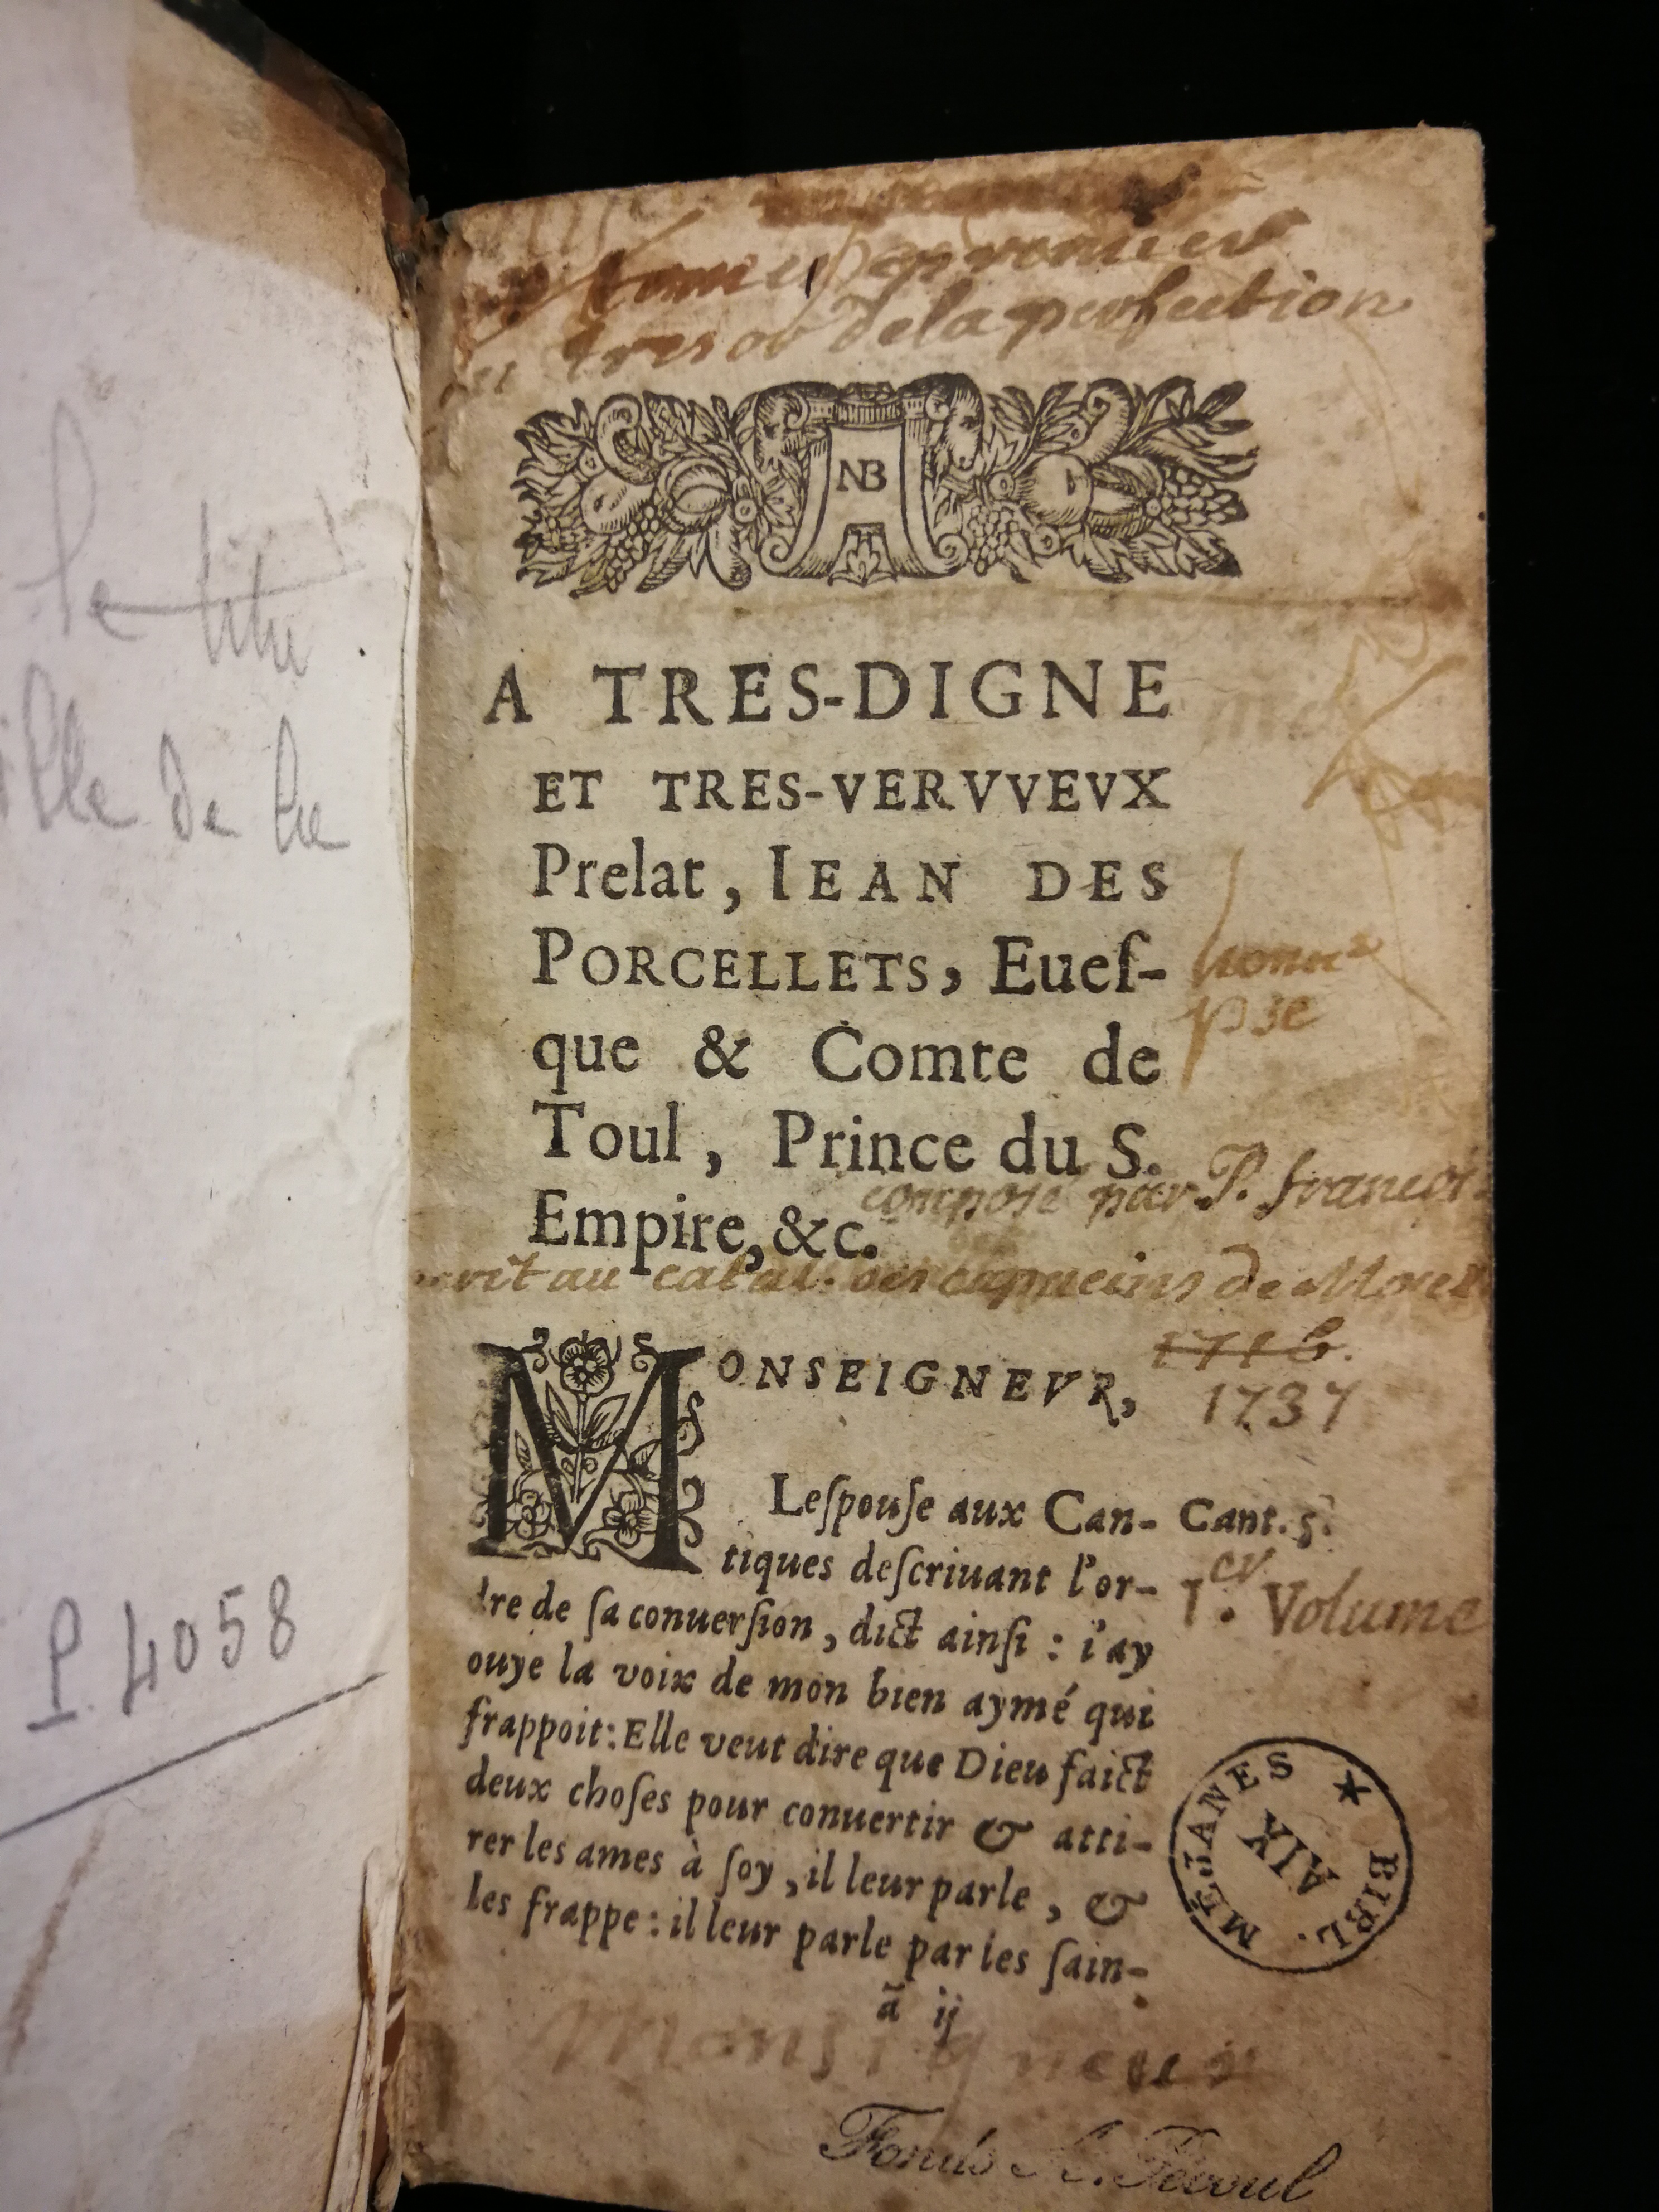 le titre
ille de
P. 4058
Tome premier
tresor de la perfection
NB
A TRES-DIGNE
ET TRES-VERVVEVX
Prelat, IEAN DES
PORCELLETS, Eueſ-
que & Comte de
Toul, Prince du S.
Empire, &c.
composé par P. francoi
au catal. des capucins de
1716.
1737
MONSEIGNEVR,
Leſpouſe aux Can-
tiques deſcriuant l'or-
dre de ſa conuerſion, dict ainſi : i'ay
ouye la voix de mon bien aymé qui
frappoit: Elle veut dire que Dieu faict
deux choſes pour conuertir & atti-
rer les ames à ſoy, il leur parle, &
les frappe : il leur parle par les ſain-
ã ij
Cant. 5.
1.er Volume
BIBL. MÉJANES
AIX
Monsigneur
Fonds